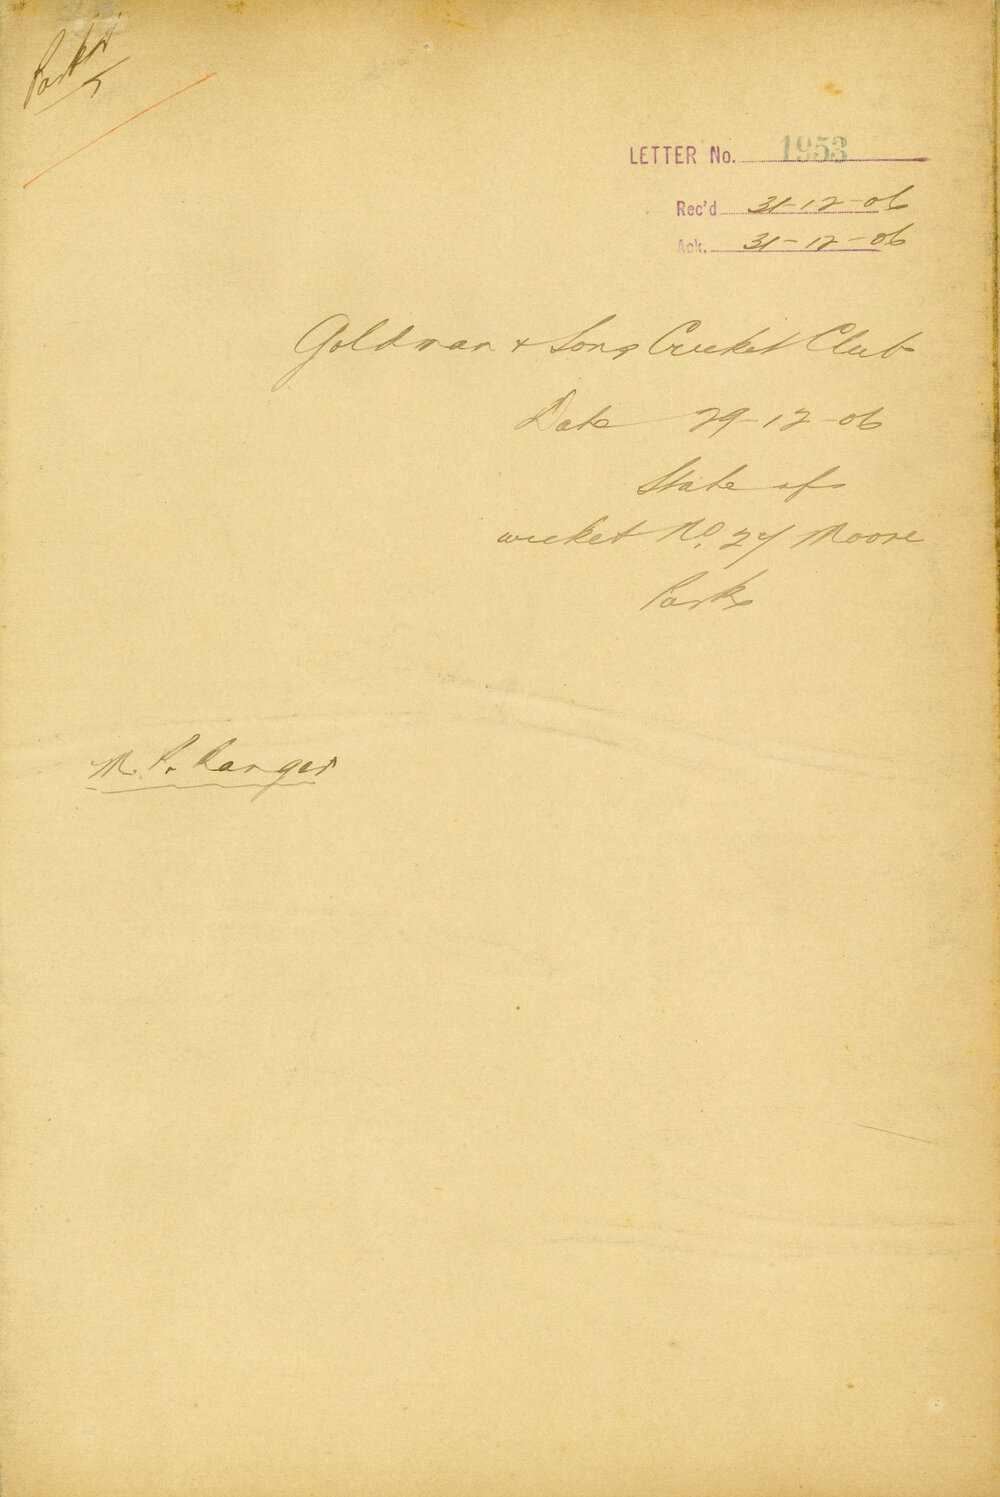 Parks
LETTER No. 1953
Rec'd 31-12-06
Ack. 31-12-06
Goldman & Sons Cricket Club
Date 29-12-06
State of
wicket No. 27 Moore
Park
M. P. Ranger